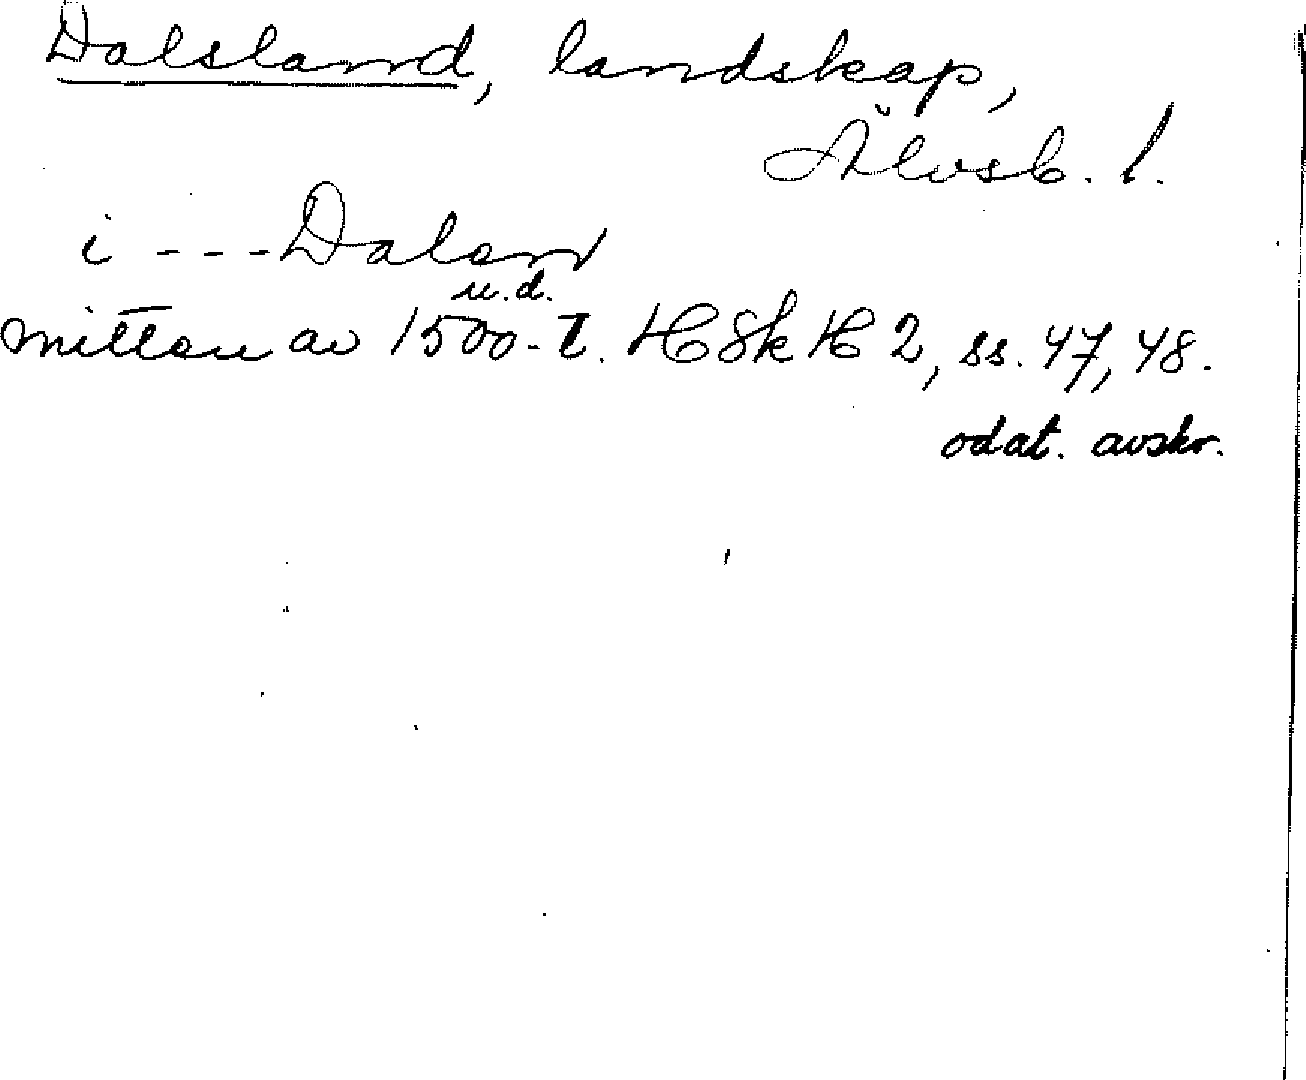 Dalsland, landskap,
Älvsb. l.
i - - - Dalen
u.d.
mitten av 1500-t. HSk H 2, ss. 47, 48.
odat. avskr.